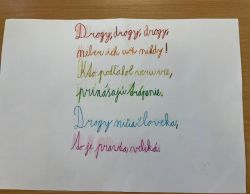 Drogy, drogy, drogy,
neber ich už nikdy!
Kto podľahol
prinášajú trápenie.
Drogy ničia človeka,
to je pravda veľká.